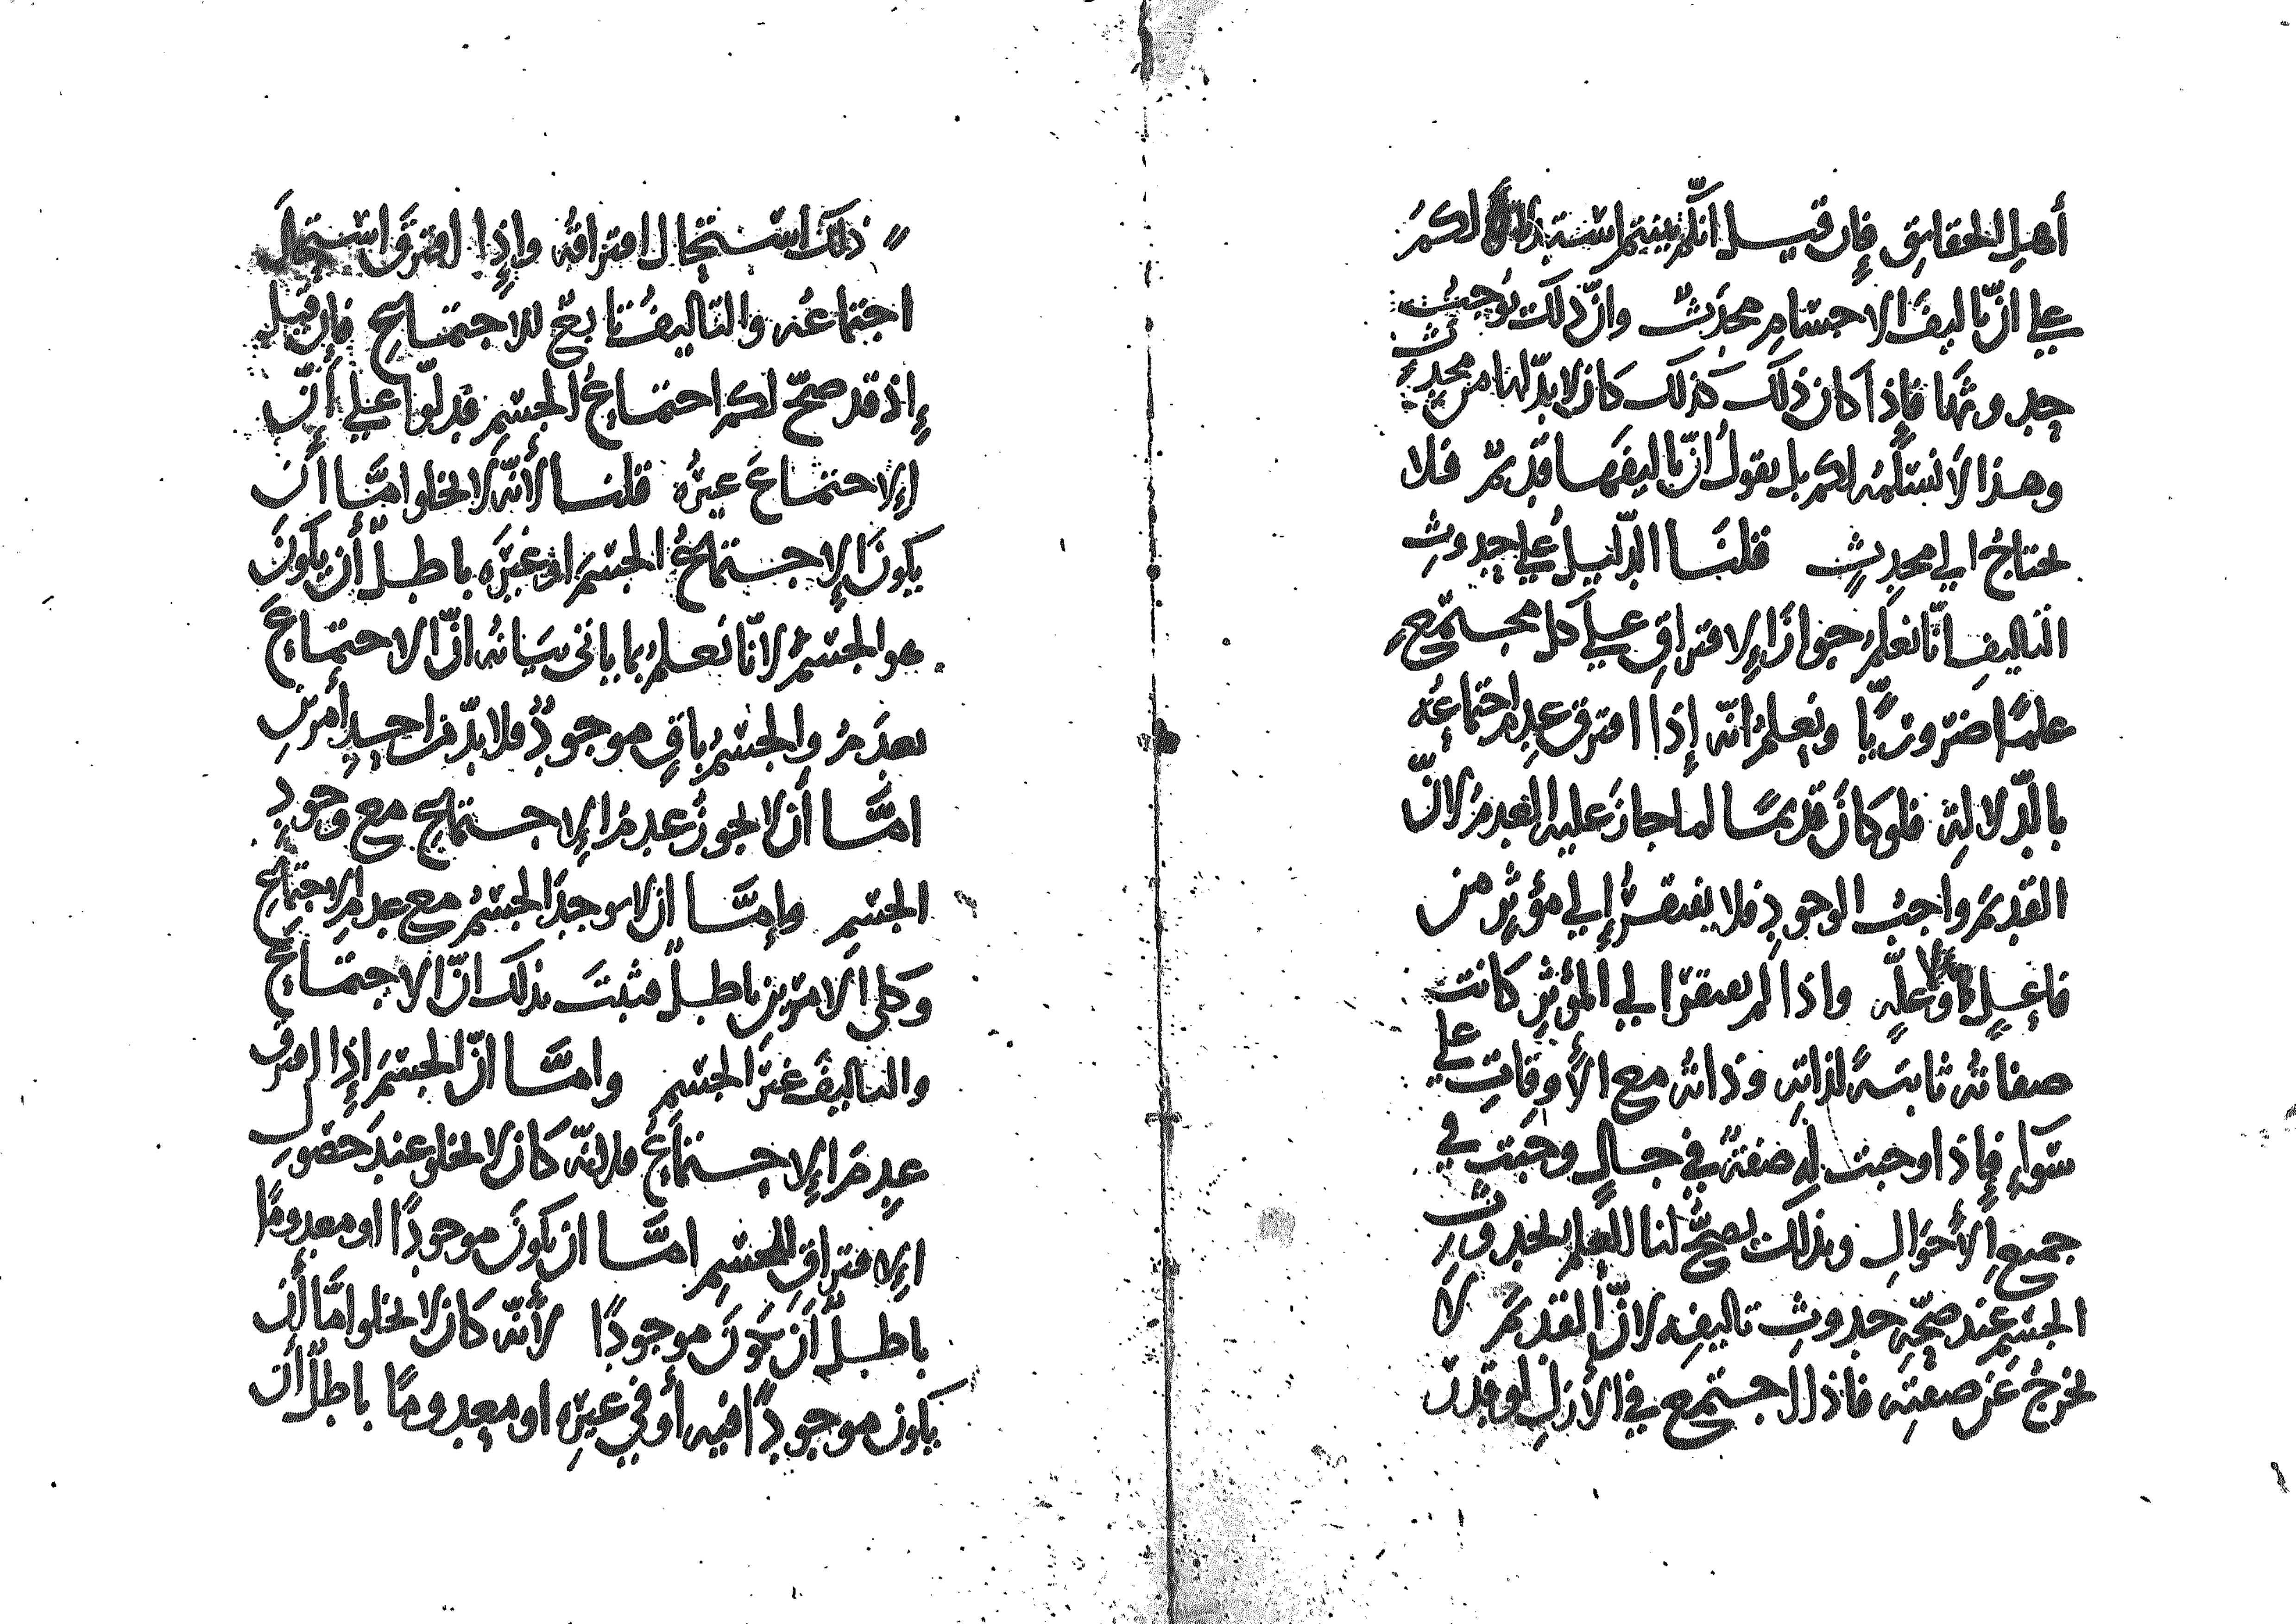 أهلِ الحقايقِ فإن قيل انكم بنيتم استدلال لكمُ
علي انّ تاليفَ الاجسَامِ محدَثٌ وانّ ذلكَ يُوجبُ
حدوثَها فإذا كان ذلكَ كذلك كان لا بدّ لها من محدِثٍ
وهذا لا نسَلّمُه لكم بل نقولُ انّ تاليفَها قديمٌ فلا
تحتاجُ الي محدِثٍ قلنَا الدّليلُ علي حدوثِ
التاليفِ انّا نعْلمُ جوازَ الإفتراقِ علي كل مجتمعٍ
علمًا ضروريًّا ونعلمُ انّه إذا افترق عدِمَ اجتماعُه
بالدّلالةِ فلو كانَ قديمًا لما جازَ عليه العدمُ لانّ
القديمَ واجبُ الوجودِ فلا يفتقرُ إلي مؤثرٍ من
فاعلٍ ولا علّهٍ واذا لم يفتقر الي المؤثرِ كانت
صفاتُه ثابتةً لذاتِه وذاتُه مع الأوقاتِ علي
سَواءٍ فإذا وجبت له صفةٌ في حالٍ وجَبت في
جميع الأحوَالِ وبذلك يصحُّ لنا العلم بحدوثِ
الجسمِ عند صحّةِ حدوثِ تاليفِه لانّ القديمَ لا
يخرجُ عَن صفتِه فاذا اجتمع في الأزلِ لو قدرنا
ذلك استحال افتراقُه وإذا افترقَ استحالَ
اجتماعُه والتاليفُ تابعٌ للاجتماعِ فإن قيل
إذ قد صحّ لكم اجتماعُ الجسمِ فدلّوا علي أنّ
الإجتماعَ غيرُه قلنا لأنّه لا يخلو امَّا أن
يكونَ الإجتماعُ الجسمَ اوْ غيرَه باطلٌ أن يكونَ
هو الجسمُ لانّا نعلمُ بما ياتي بيَانُه انّ الاجتماعَ
يعدَمُ والجسمُ باقٍ موجودٌ فلا بدّ من احدِ أمرين
امَّا أن لا يجوزُ عدمُ الإجتماعِ مع وجودِ
الجسمِ وإمَّا ان لا يوجدَ الجسمُ مع عدمِ الإجتماعِ
وكلي الامرينِ باطلٌ فثبتَ بذلك انّ الاجتماعَ
والتاليفَ غيرُ الجسمِ وامَّا انّ الجسمَ إذا افترق
عدِمَ الإجتماعُ فلانّه كان لا يخلو عندَ حضورِ
الإفتراقِ للجسمِ امَّا ان يكونَ موجودًا او معدومًا
باطلٌ أن يكونَ موجودًا لأنّه كان لا يخلو امَّا أن
يكون موجودًا فيه أو في غيرِه او معدومًا باطلٌ أن